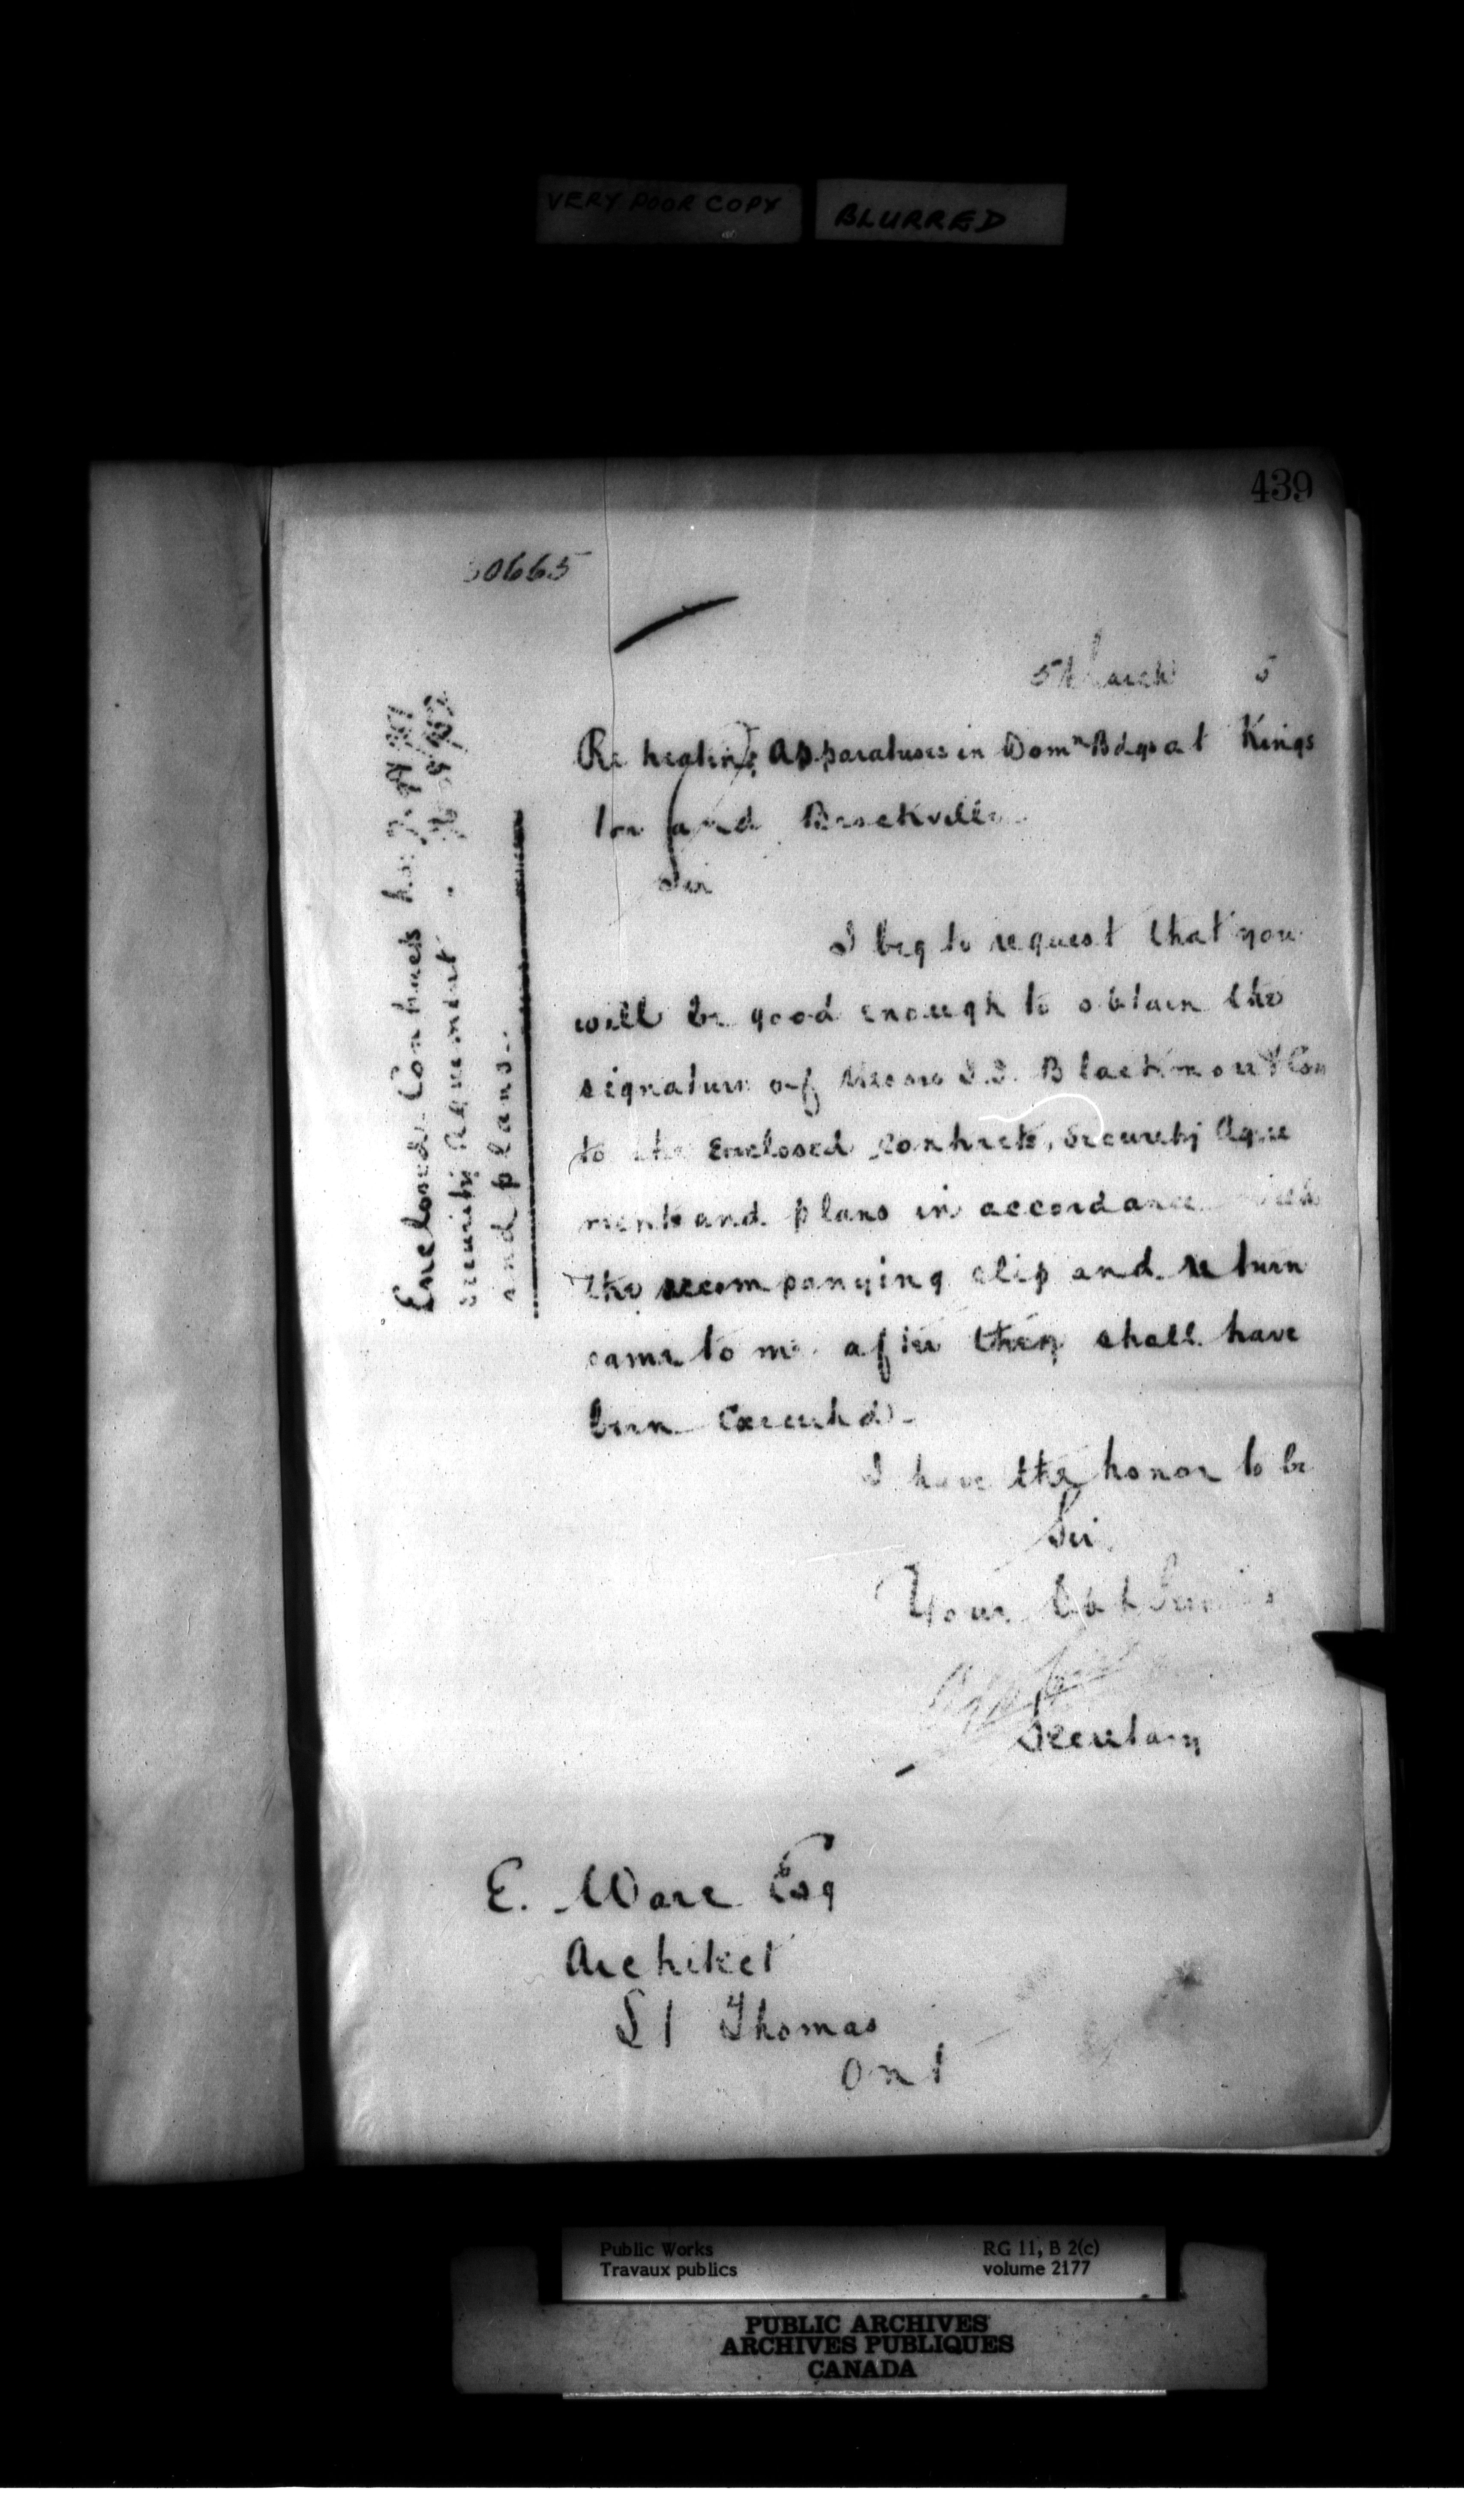 VERY POOR COPY
BLURRED
439
0665
5 March 5
Re heating Apparatuses in Domn Bdgs at Kings
ton and Brockville
Sir
I beg to request that you
will be good enough to obtain the
signature of Messrs Blackmore & Co
to the Enclosed contracts, Security Agree
ments and plans in accordance with
the accompanying slip and return
same to me after they shall have
been Executed.
I have the honor to be
Sir
Your Obt
Secretary
E. Ware Esq
Architect
St Thomas
Ont
Enclosed. Contracts
Security Agreement
and plans.
Public Works
Travaux publics
RG 11, B 2(c)
volume 2177
PUBLIC ARCHIVES
ARCHIVES PUBLIQUES
CANADA